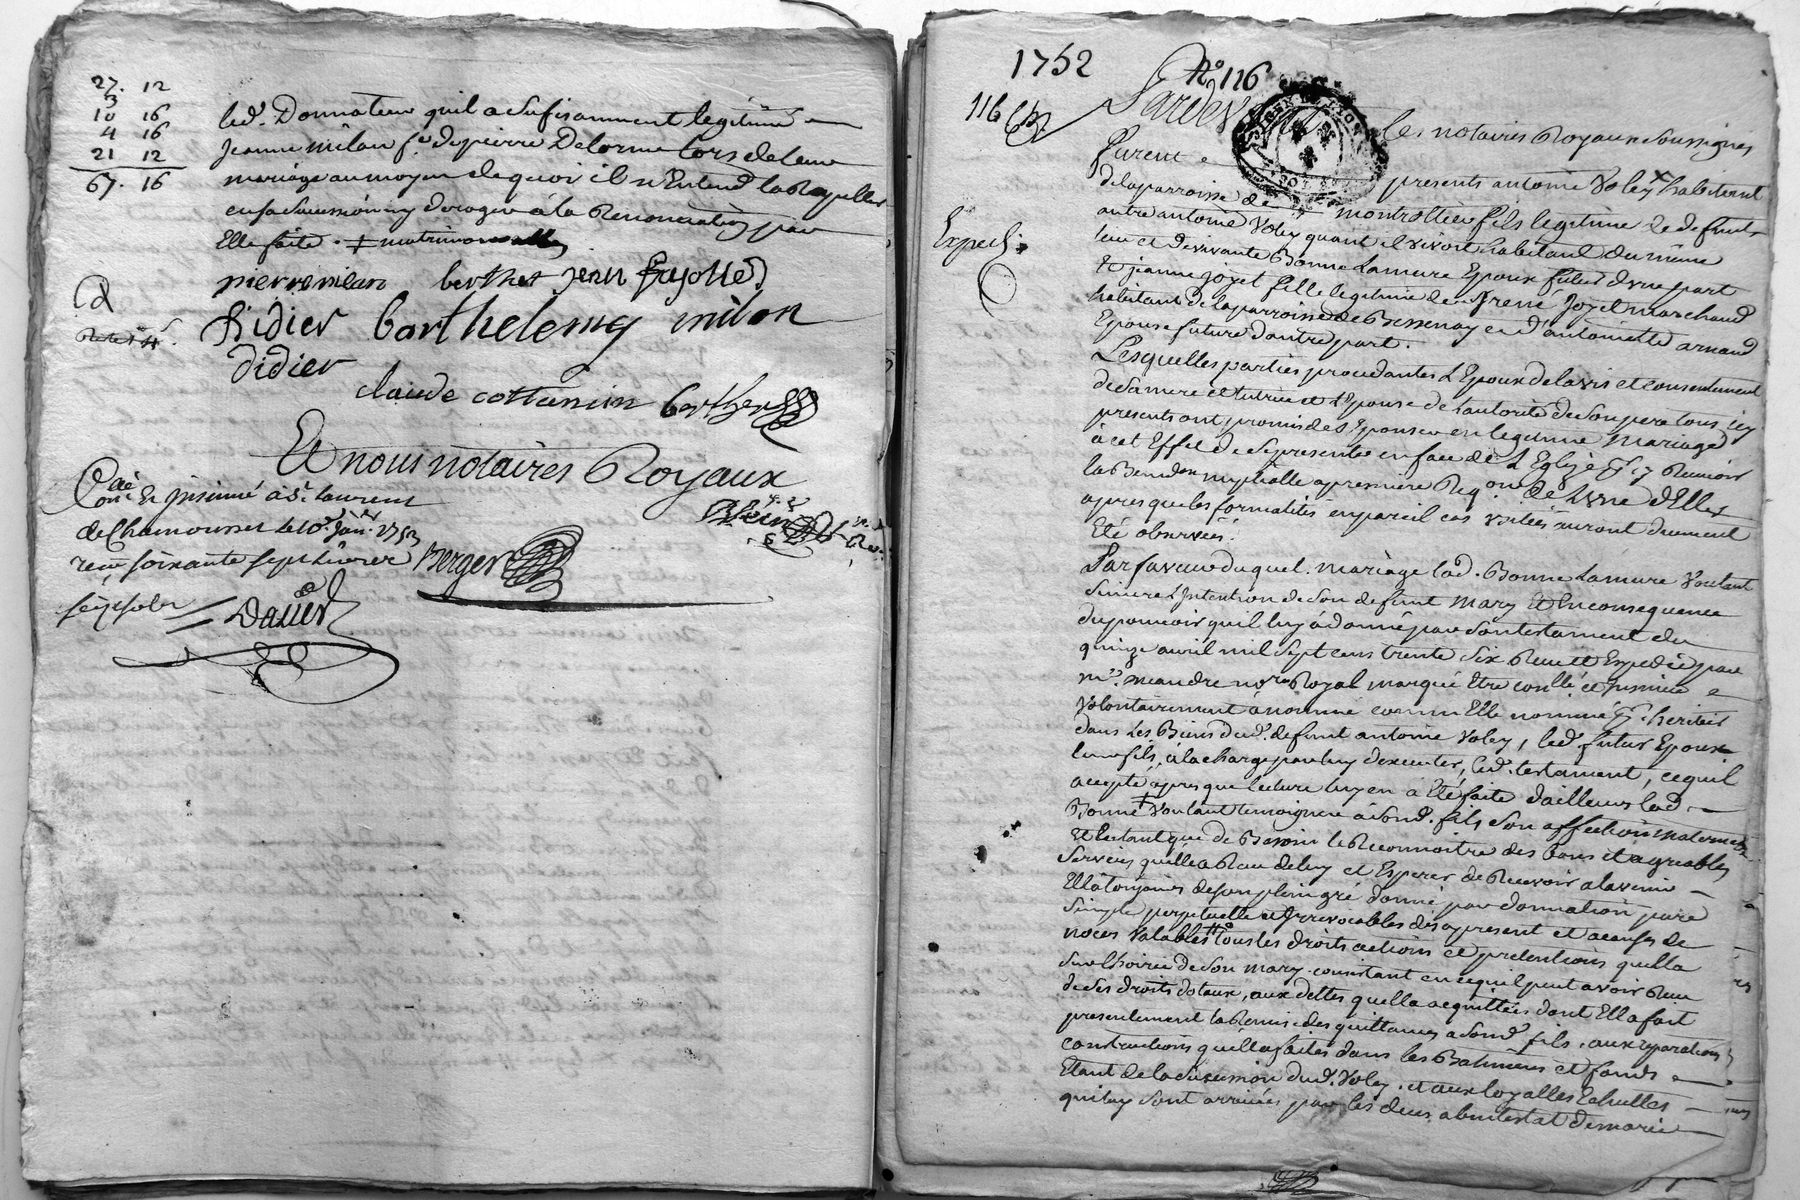 27. 12
3
10 16
4 16
21 12
67. 16
led. Donnateur quil a sufisamment legitimé
jeanne milan fe. de pierre Delorme lors de leur
mariage au moyen de quoi il n'Entend la Rapeller
en sa succession ny deroger à la Renonciation par
Elle faite. + matrimonialle
pierre milan berthet jean fayolle
Didier barthelemy milan
didier
claude cottancin berthet
Et nous notaires Royaux
Con.lé Et jnsinué à St. Laurent
de Chamousset le 10e. jan.er 1753
reçu soixante sept livres
seize sols
Berger
Davier
1752
No. 116
116
Expedi.
Pardevant les notaires Royaux soussignés
furent presents antoine Voley habitant
de la parroisse de montrottier fils legitime de defunt
autre antoine Voley quant il vivoit habitant du même
lieu et de vivante Bonne Lamure Epoux futur d'une part
Et jeanne joyet fille legitime de Joyet marchand
habitant de la parroisse de Bessenay et d'antoinette arnaud
Epouse future d'autre part.
Lesquelles parties procedantes L'Epoux de l'avis et consentement
de sa mere et tutrice et L'Epouse de L'autorité de son pere tous icy
presents ont promis de s'Epouser en legitime mariage
à cet Effet de se presenter en face de L'Eglize pr. y Recevoir
la Bened.on nuptialle a premiere Req.on de L'une d'Elles
apres que les formalités en pareil cas usitées auront duement
Eté observées.
Par faveur duquel mariage lad. Bonne Lamure Voulant
suivre L'Intention de son defunt mary Et En consequence
du pouvoir qu'il luy à donné par son testament du
quinze avril mil sept cens trente six Receu et Expedié par
me. meandre no.re Royal marqué Etre conllé et jnsinué
Volontairement à nommé comm' Elle nomme pr. heritier
dans Les Biens dud. defunt antoine Voley, led. futur Epoux
leur fils, à la charge par luy d'executer, led. testament, ce quil
accepté apres que lecture luy en à Eté faite d'ailleurs lad.
Bonne Voulant temoigner à sond. fils son affection maternelle
Et En tant que de Besoin le Reconnoitre des Bons et agreables
services quelle a Receu de luy et Esperer de Recevoir a l'avenir
Ella toujours de son plein gré donné par donnation pure
simple perpetuelle et Irrevocables des apresent et a cause de
noces Valables tous les droits actions et pretentions quella
sur l'hoirie de son mary consistant en ce quil peut avoir Receu
de ses droits dotaux, aux dettes quella acquittées dont Ella fait
presentement la Remise des quittances a sond. fils, aux reparations
constructions quella faites dans les Batiments et fonds
Etant de la succession dud. Voley. et aux loyalles Echuttes
qui luy sont arrivées par les deces abintestat de marie